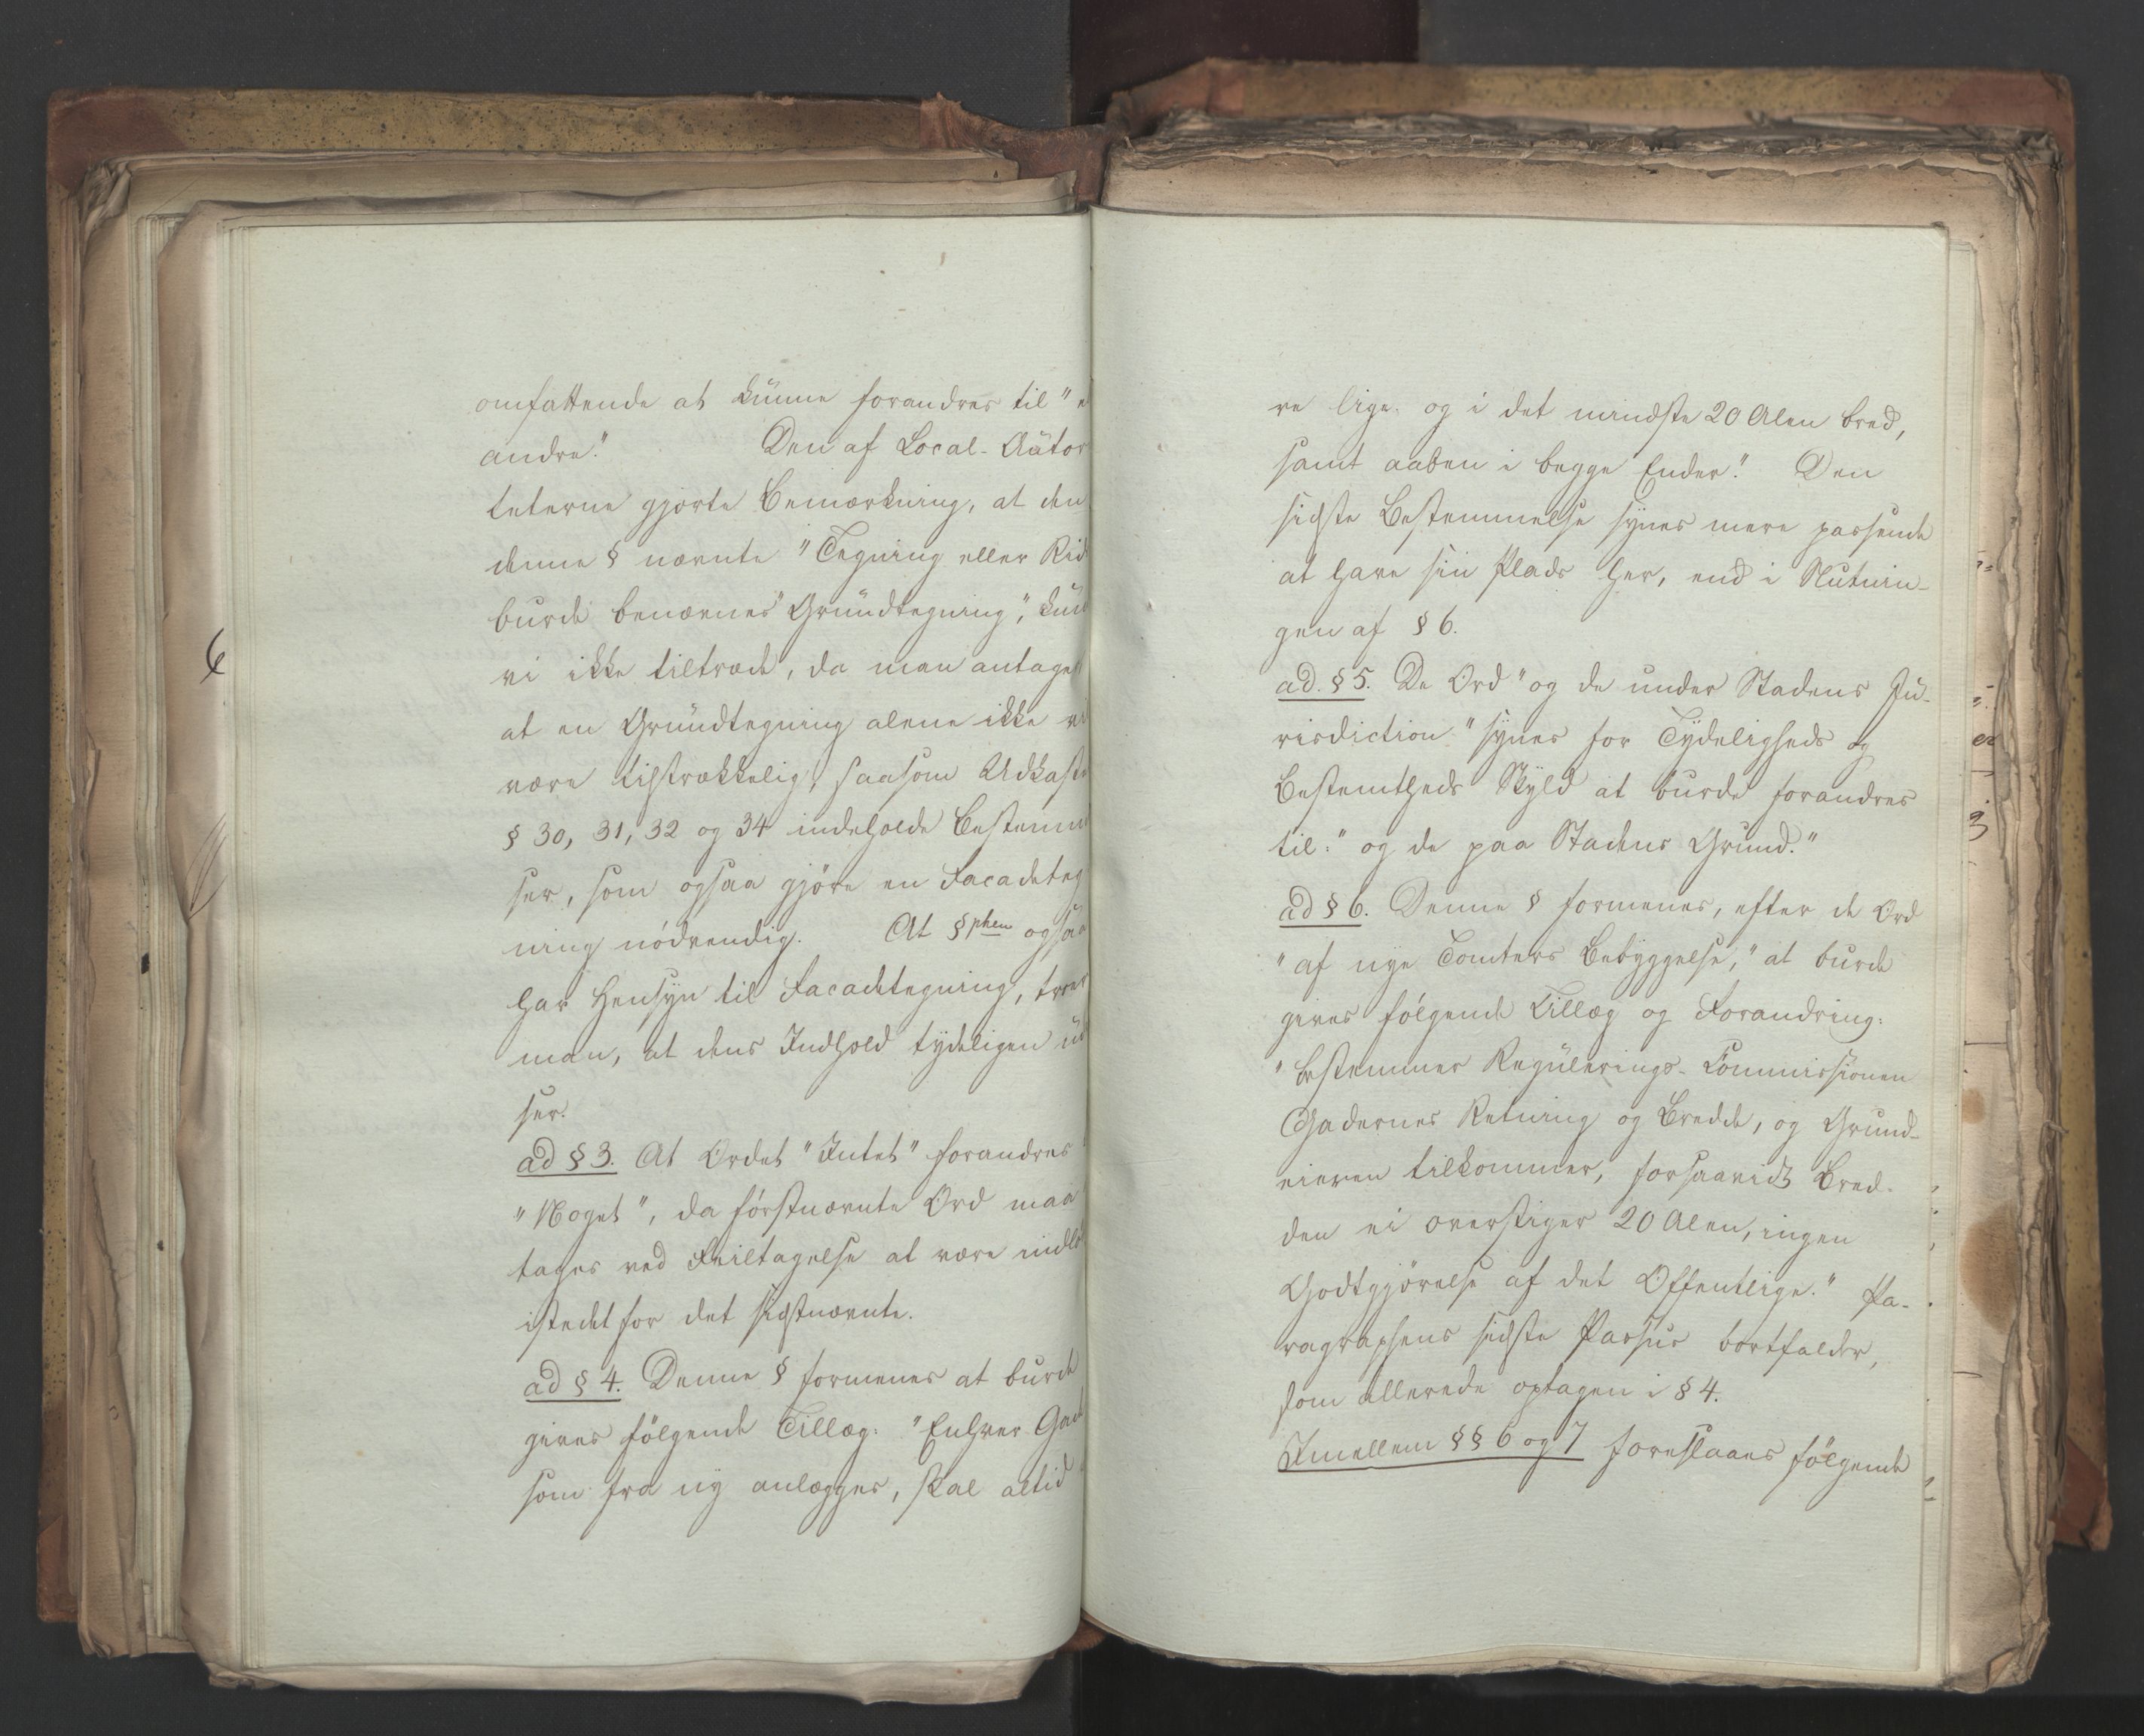 omfattende at kunne forandres til "e
andre."           Den af Local-Autor
teterne gjorte Bemærkning, at den
denne § nævnte "Tegning eller Rid
burde benævnes "Grundtegning", kun
vi ikke tiltræde, da man antager
at en Grundtegning alene ikke vi
være tilstrækkelig, saasom Udkast
§ 30, 31, 32 og 34 indeholde Bestemm
ser, som ogsaa gjöre en Facadeteg
ning nödvendig.        At §phen ogsaa
har Hensyn til Facadetegning, troer
man, at dens Indhold tydeligen ud
ser.
ad § 3. At Ordet "Intet" forandres
"Noget", da förstnævnte Ord maa
tages ved Feiltagelse at være indlö
istedet for det sidstnævnte.
ad § 4. Denne § formenes at burde
gives fölgende Tillæg: "Enhver Gade
som fra ny anlægges, skal altid
6
re lige og i det mindste 20 Alen bred,
samt aaben i begge Ender." Den
sidste Bestemmelse synes mere passende
at have sin Plads her, end i Slutnin-
gen af § 6.
ad. § 5. De Ord "og de under Stadens Ju-
risdiction" synes for Tydeligheds og
Bestemtheds Skyld at burde forandres
til: "og de paa Stadens Grund."
ad § 6. Denne § formenes, efter de Ord
"af nye Tomters Bebyggelse," at burde
gives fölgende Tillæg og Forandring:
"bestemmer Regulerings-Commissionen
Gadernes Retning og Bredde, og Grund-
eieren tilkommer, forsaavidt Bred-
den ei overstiger 20 Alen, ingen
Godtgjörelse af det Offentlige." Pa-
ragraphens sidste Passus bortfalder,
som allerede optagen i § 4.
Imellem §§ 6 og 7 foreslaaes fölgende